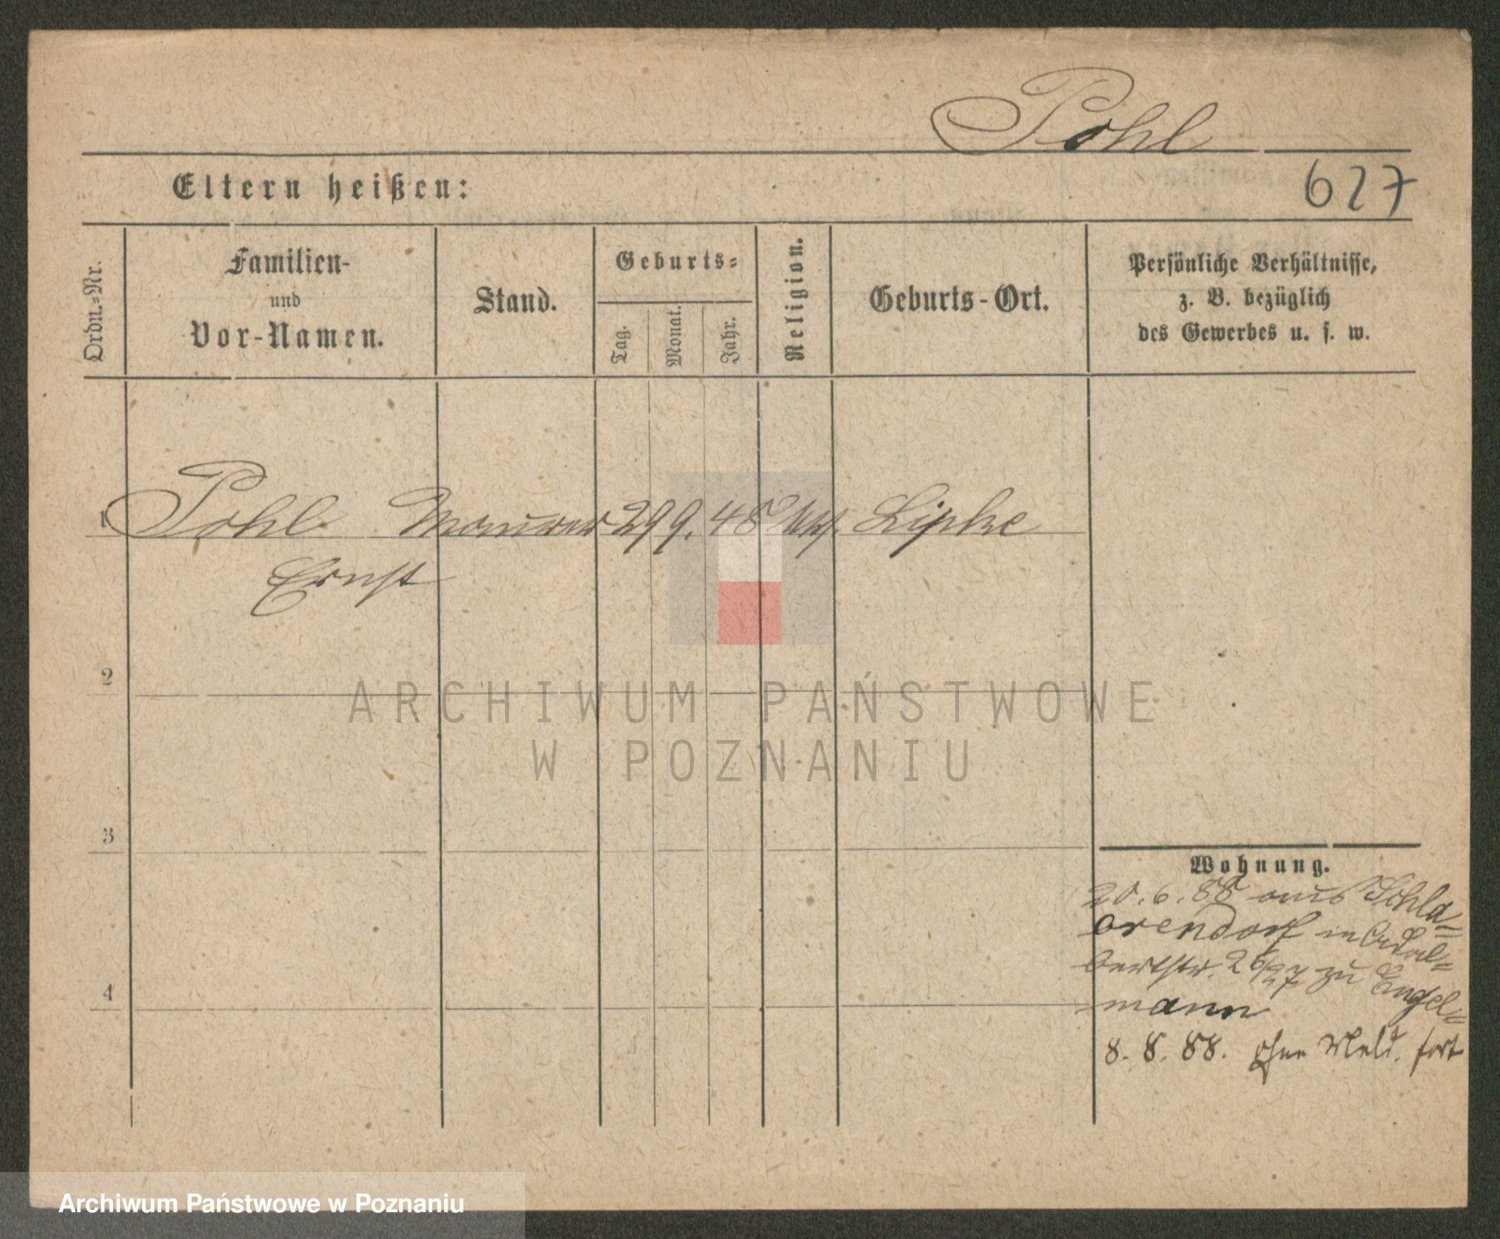 Pohl
627
Eltern heißen:
Ordn.-Nr.
Familien-
und
Vor-Namen.
Stand.
Geburts-
Tag.
Monat.
Jahr.
Religion.
Geburts-Ort.
Persönliche Verhältnisse,
z. B. bezüglich
des Gewerbes u. s. w.
1 Pohl Maurer 29 9. 48 Lipke
Ernst
2
ARCHIWUM PAŃSTWOWE
W POZNANIU
3
Wohnung.
20. 6. 88 aus Schla=
brendorf in Adal=
bertstr. 26/27 zu Engel=
mann
4
8. 8. 88. ohne Meld. fort
Archiwum Państwowe w Poznaniu